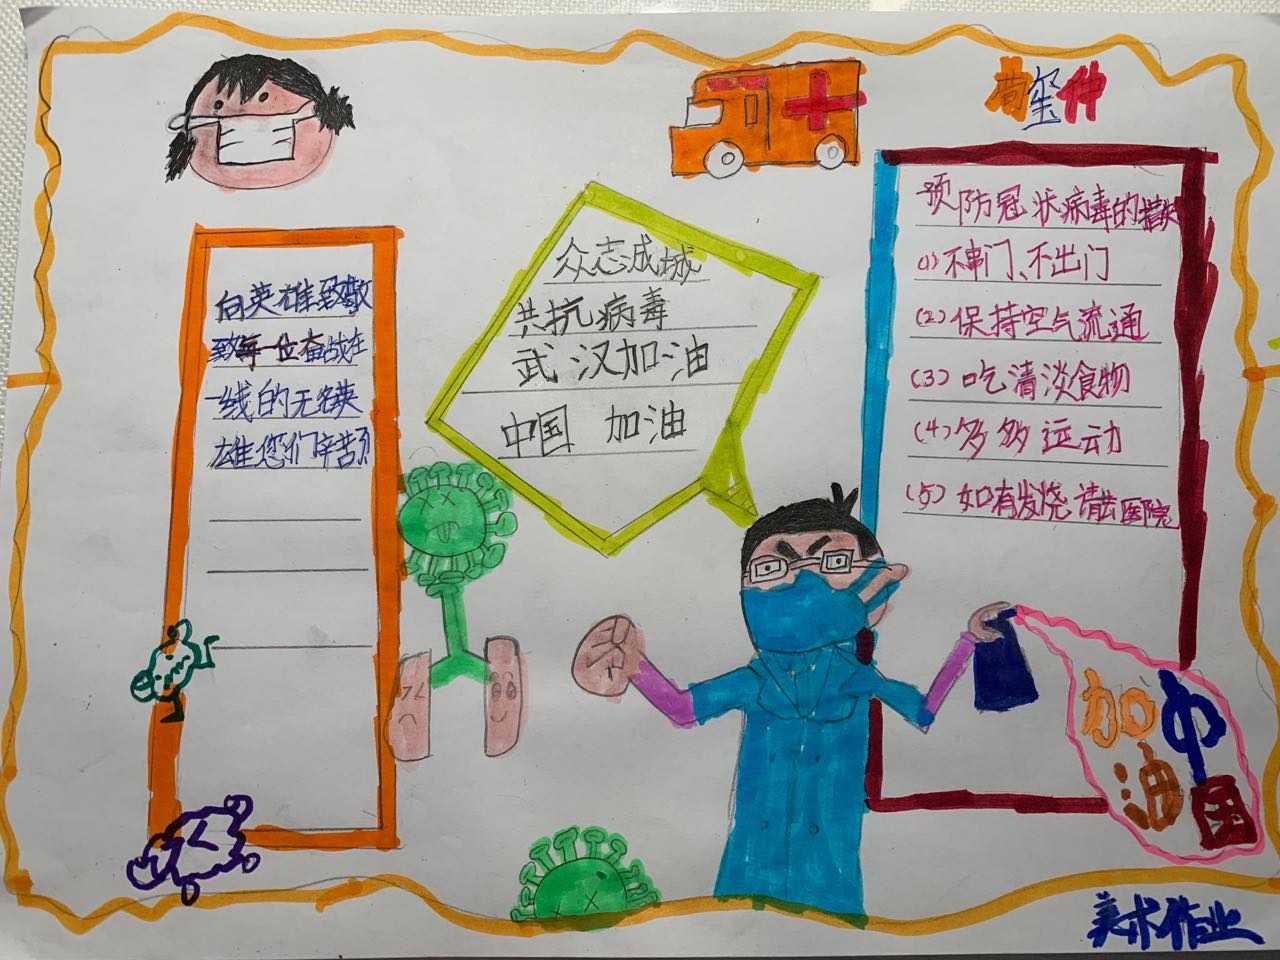 向英雄致敬
致每一位奋战在
一线的无名英
雄您们辛苦了
众志成城
共抗病毒
武汉加油
中国 加油
荀玺仲
预防冠状病毒的措施
(1)不串门、不出门
(2)保持空气流通
(3)吃清淡食物
(4)多多运动
(5)如有发烧请去医院
中国
加油
美术作业